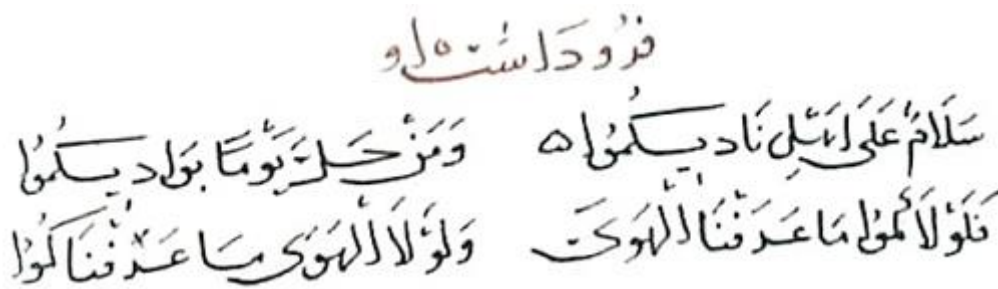 فرو داشت او
سَلَامٌ عَلَى اَهْلِ نَاديكُمُوا ۵ وَمَنْ حَلَّ يَوْمًا بوَاديكُمُوا
فَلَوْلَاكُمُوا مَا عَرَفْنَا الْهَوَى وَلَوْلَا الْهَوَى مَا عَرَفْنَاكُمُوا